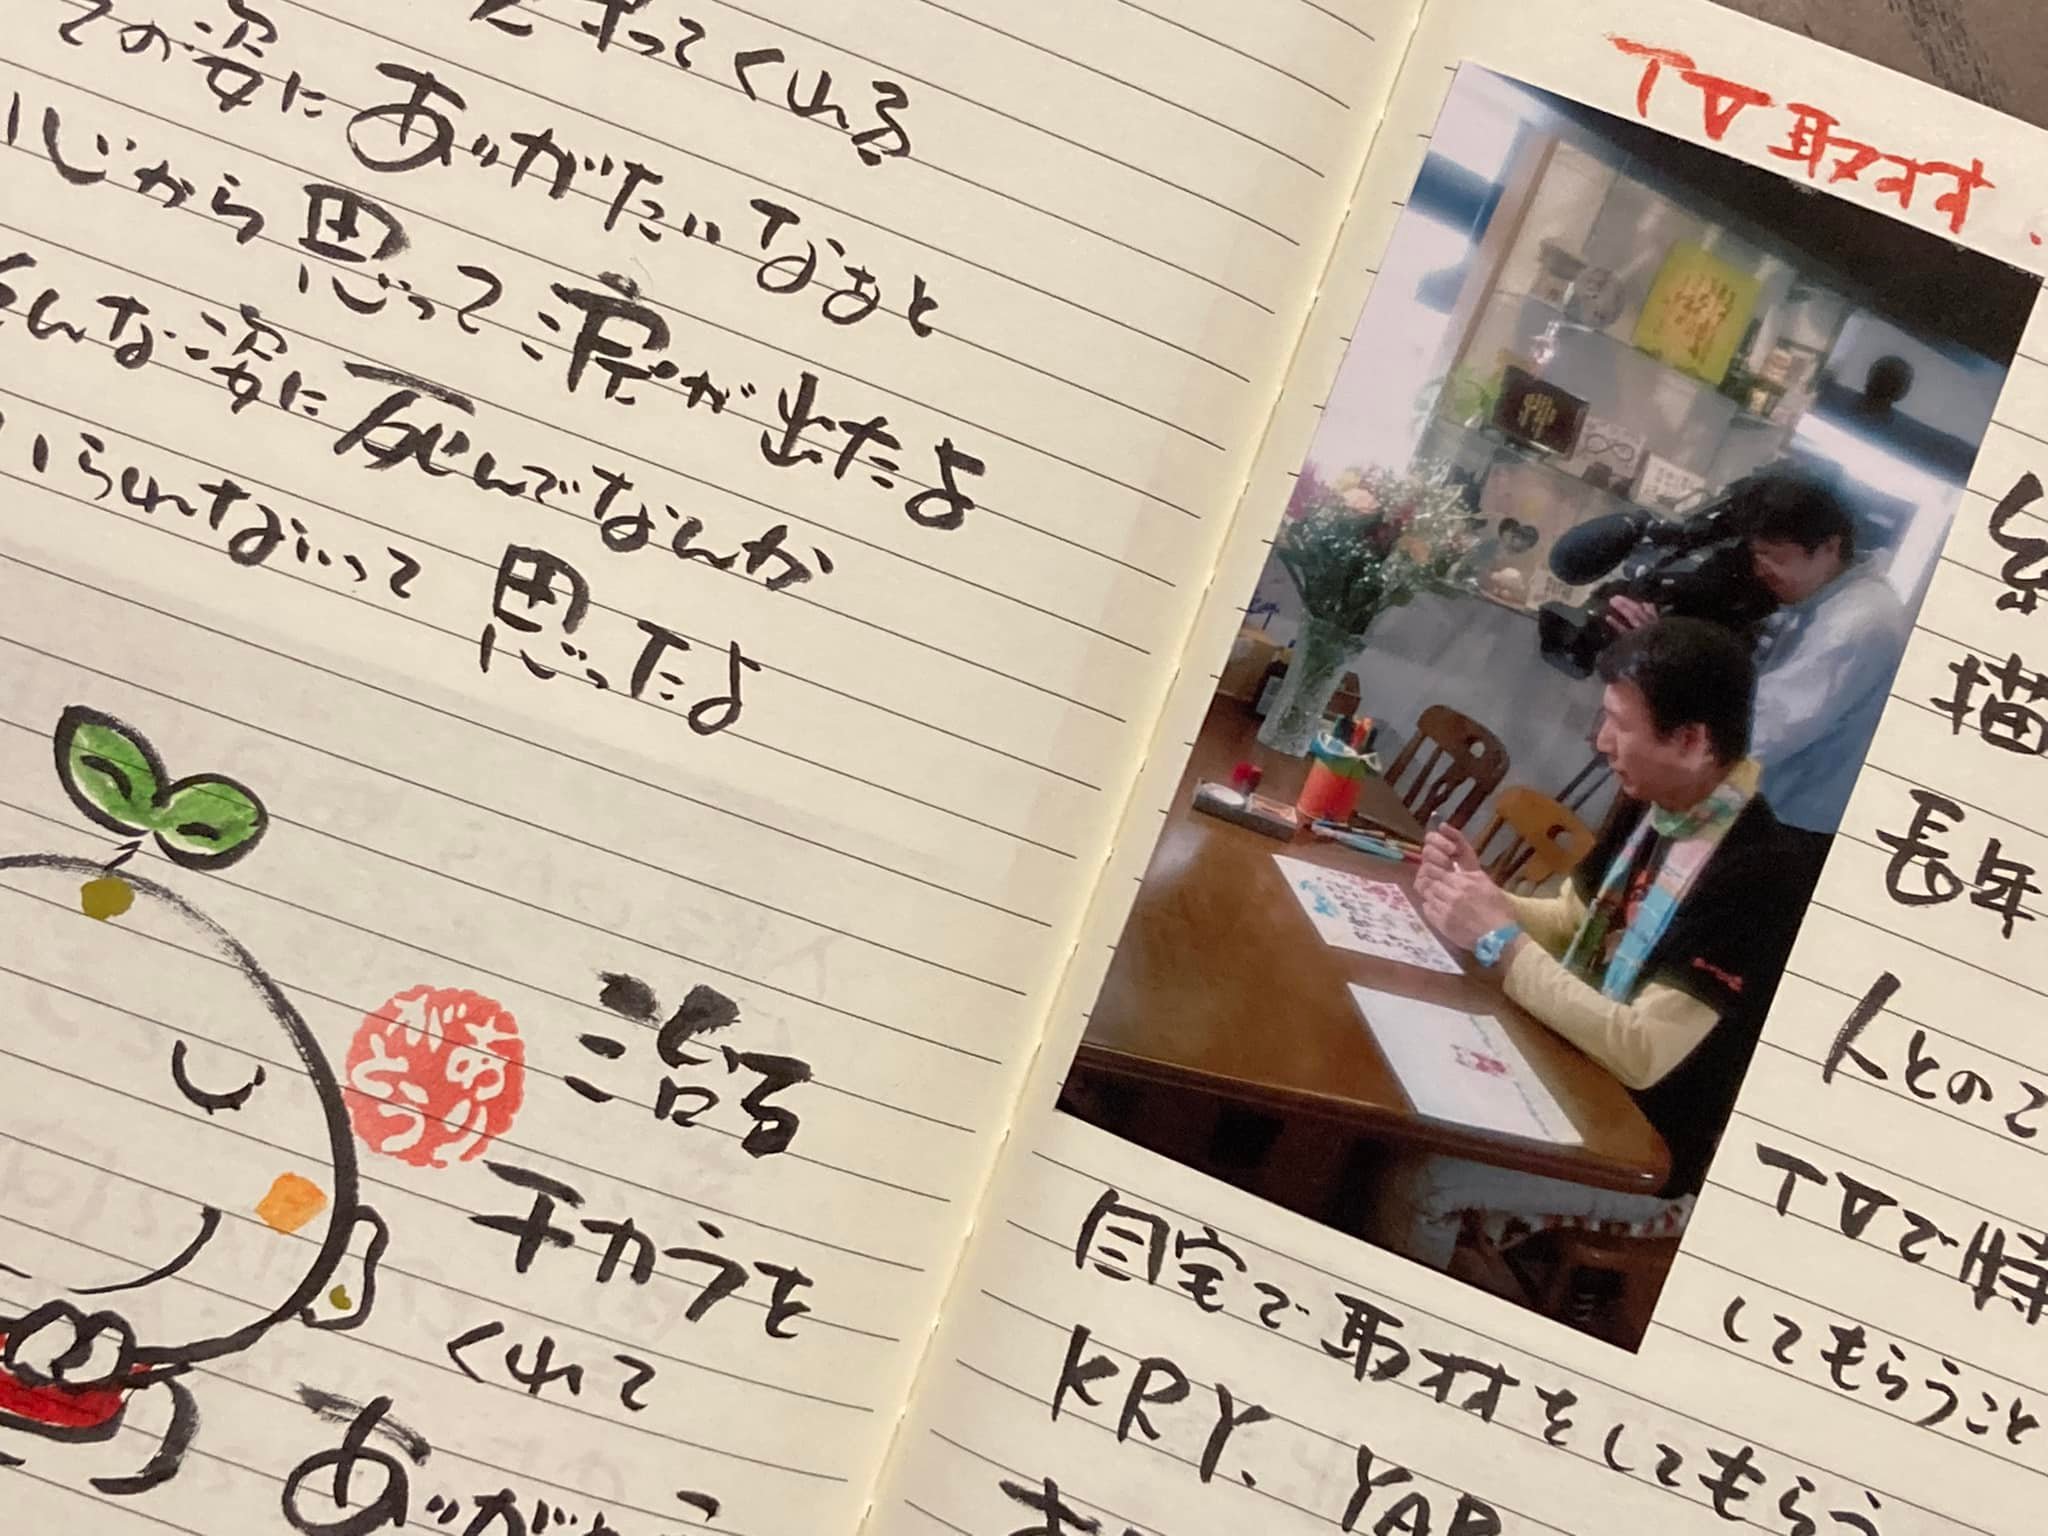 ってくれる
その姿にありがたいなぁと
心から思って涙が出たよ
そんな姿に死んでなんか
いられないって思ったよ
ありがとう
治る
チカラを
くれて
ありがとう
TV取材
絵
描
長年
人とのこ
TVで特
してもらうこと
自宅で取材をしてもらう
KRY、YAB